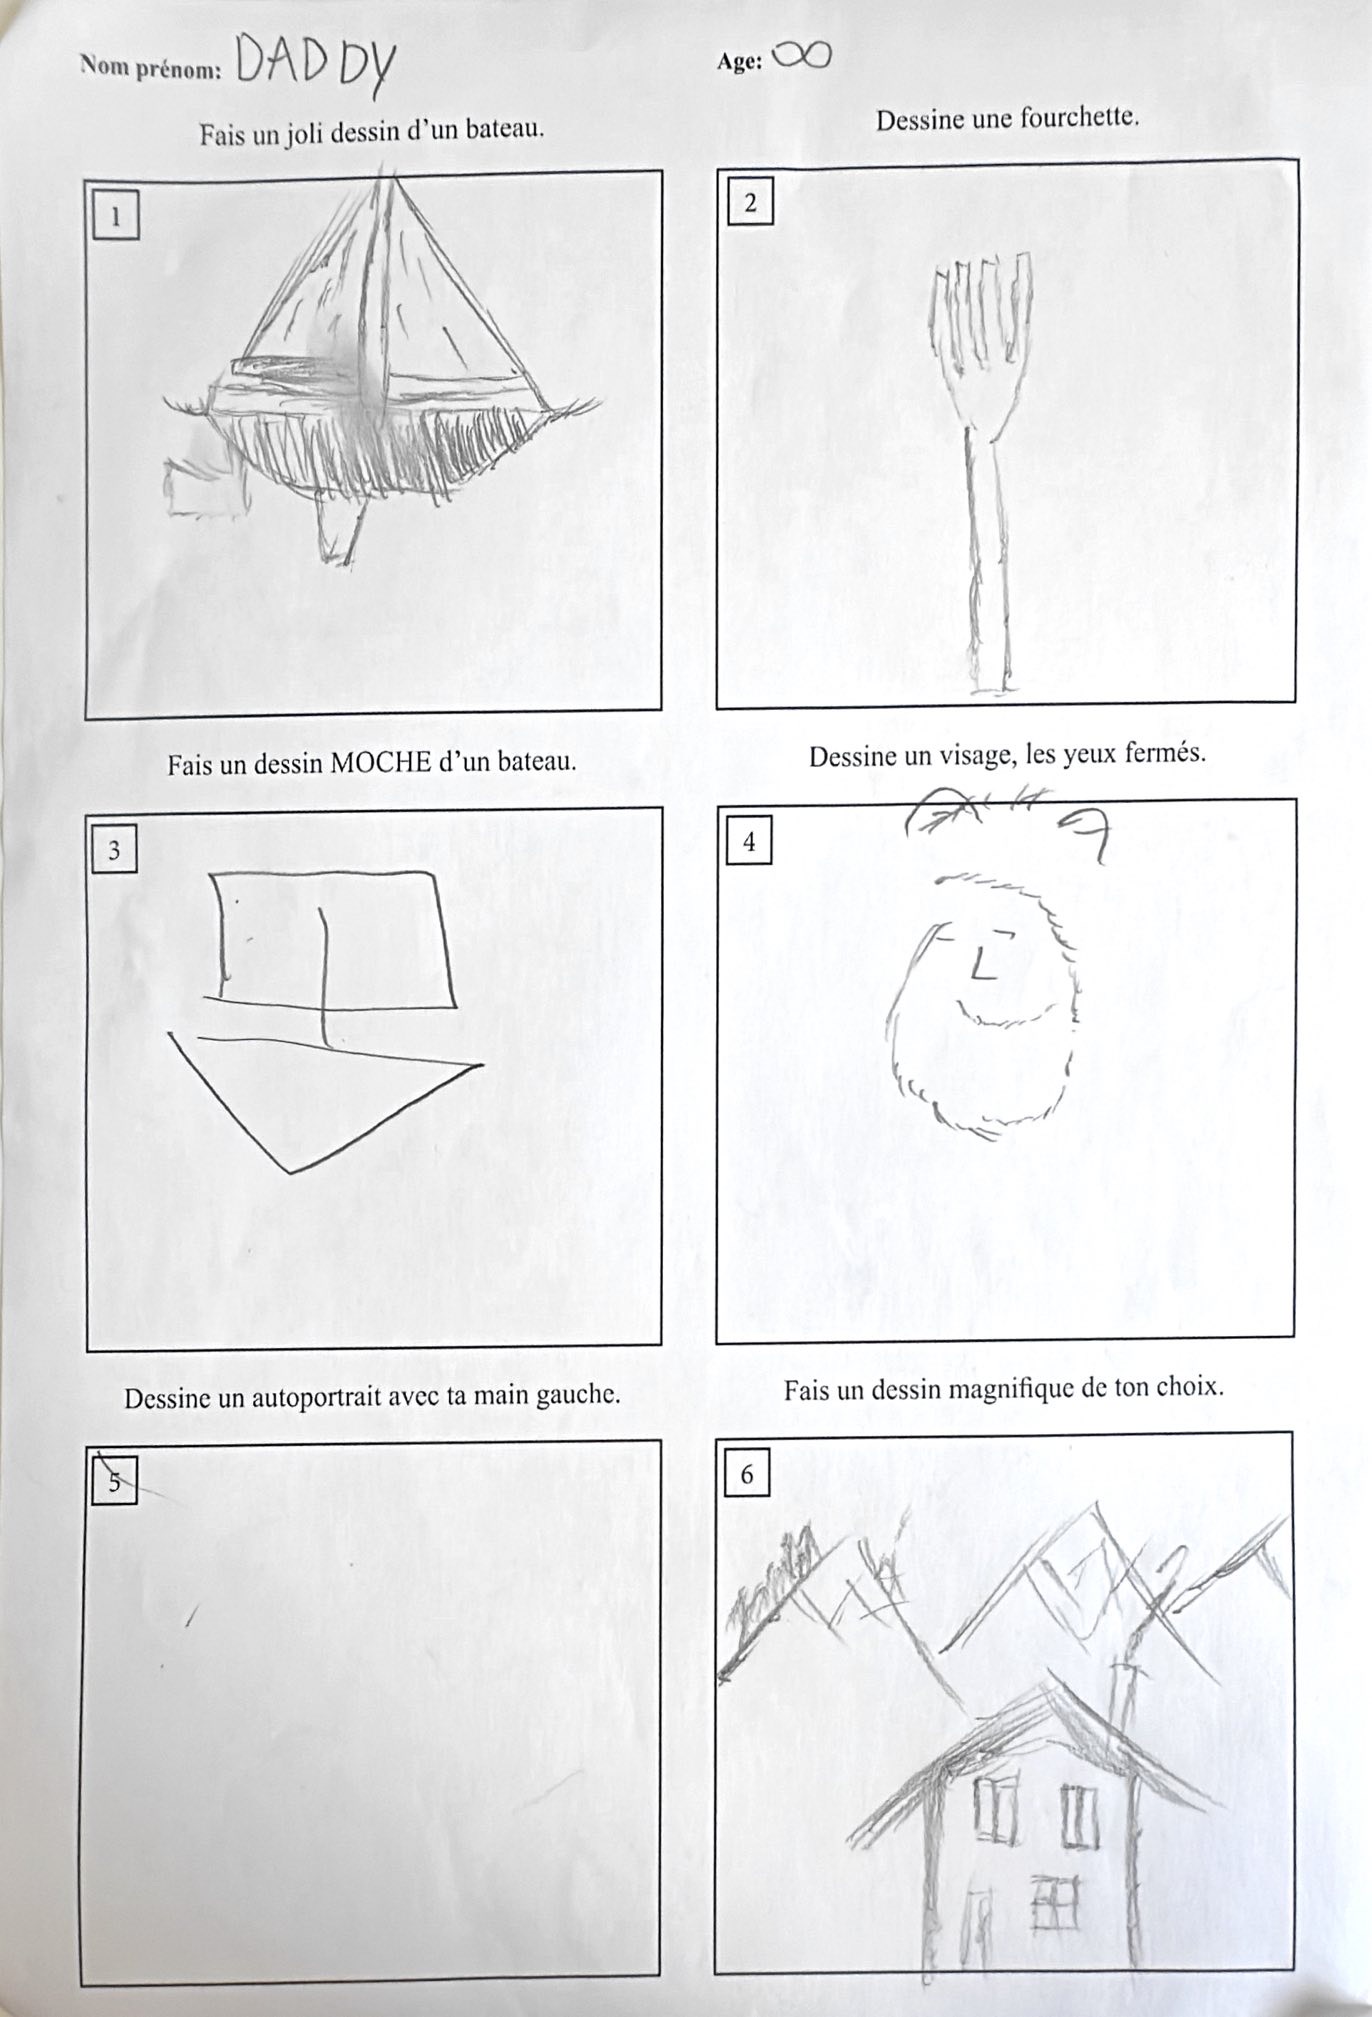 Nom prénom: DADDY
Age: ∞
Fais un joli dessin d'un bateau.
Dessine une fourchette.
1
2
Fais un dessin MOCHE d'un bateau.
Dessine un visage, les yeux fermés.
3
4
Dessine un autoportrait avec ta main gauche.
Fais un dessin magnifique de ton choix.
5
6